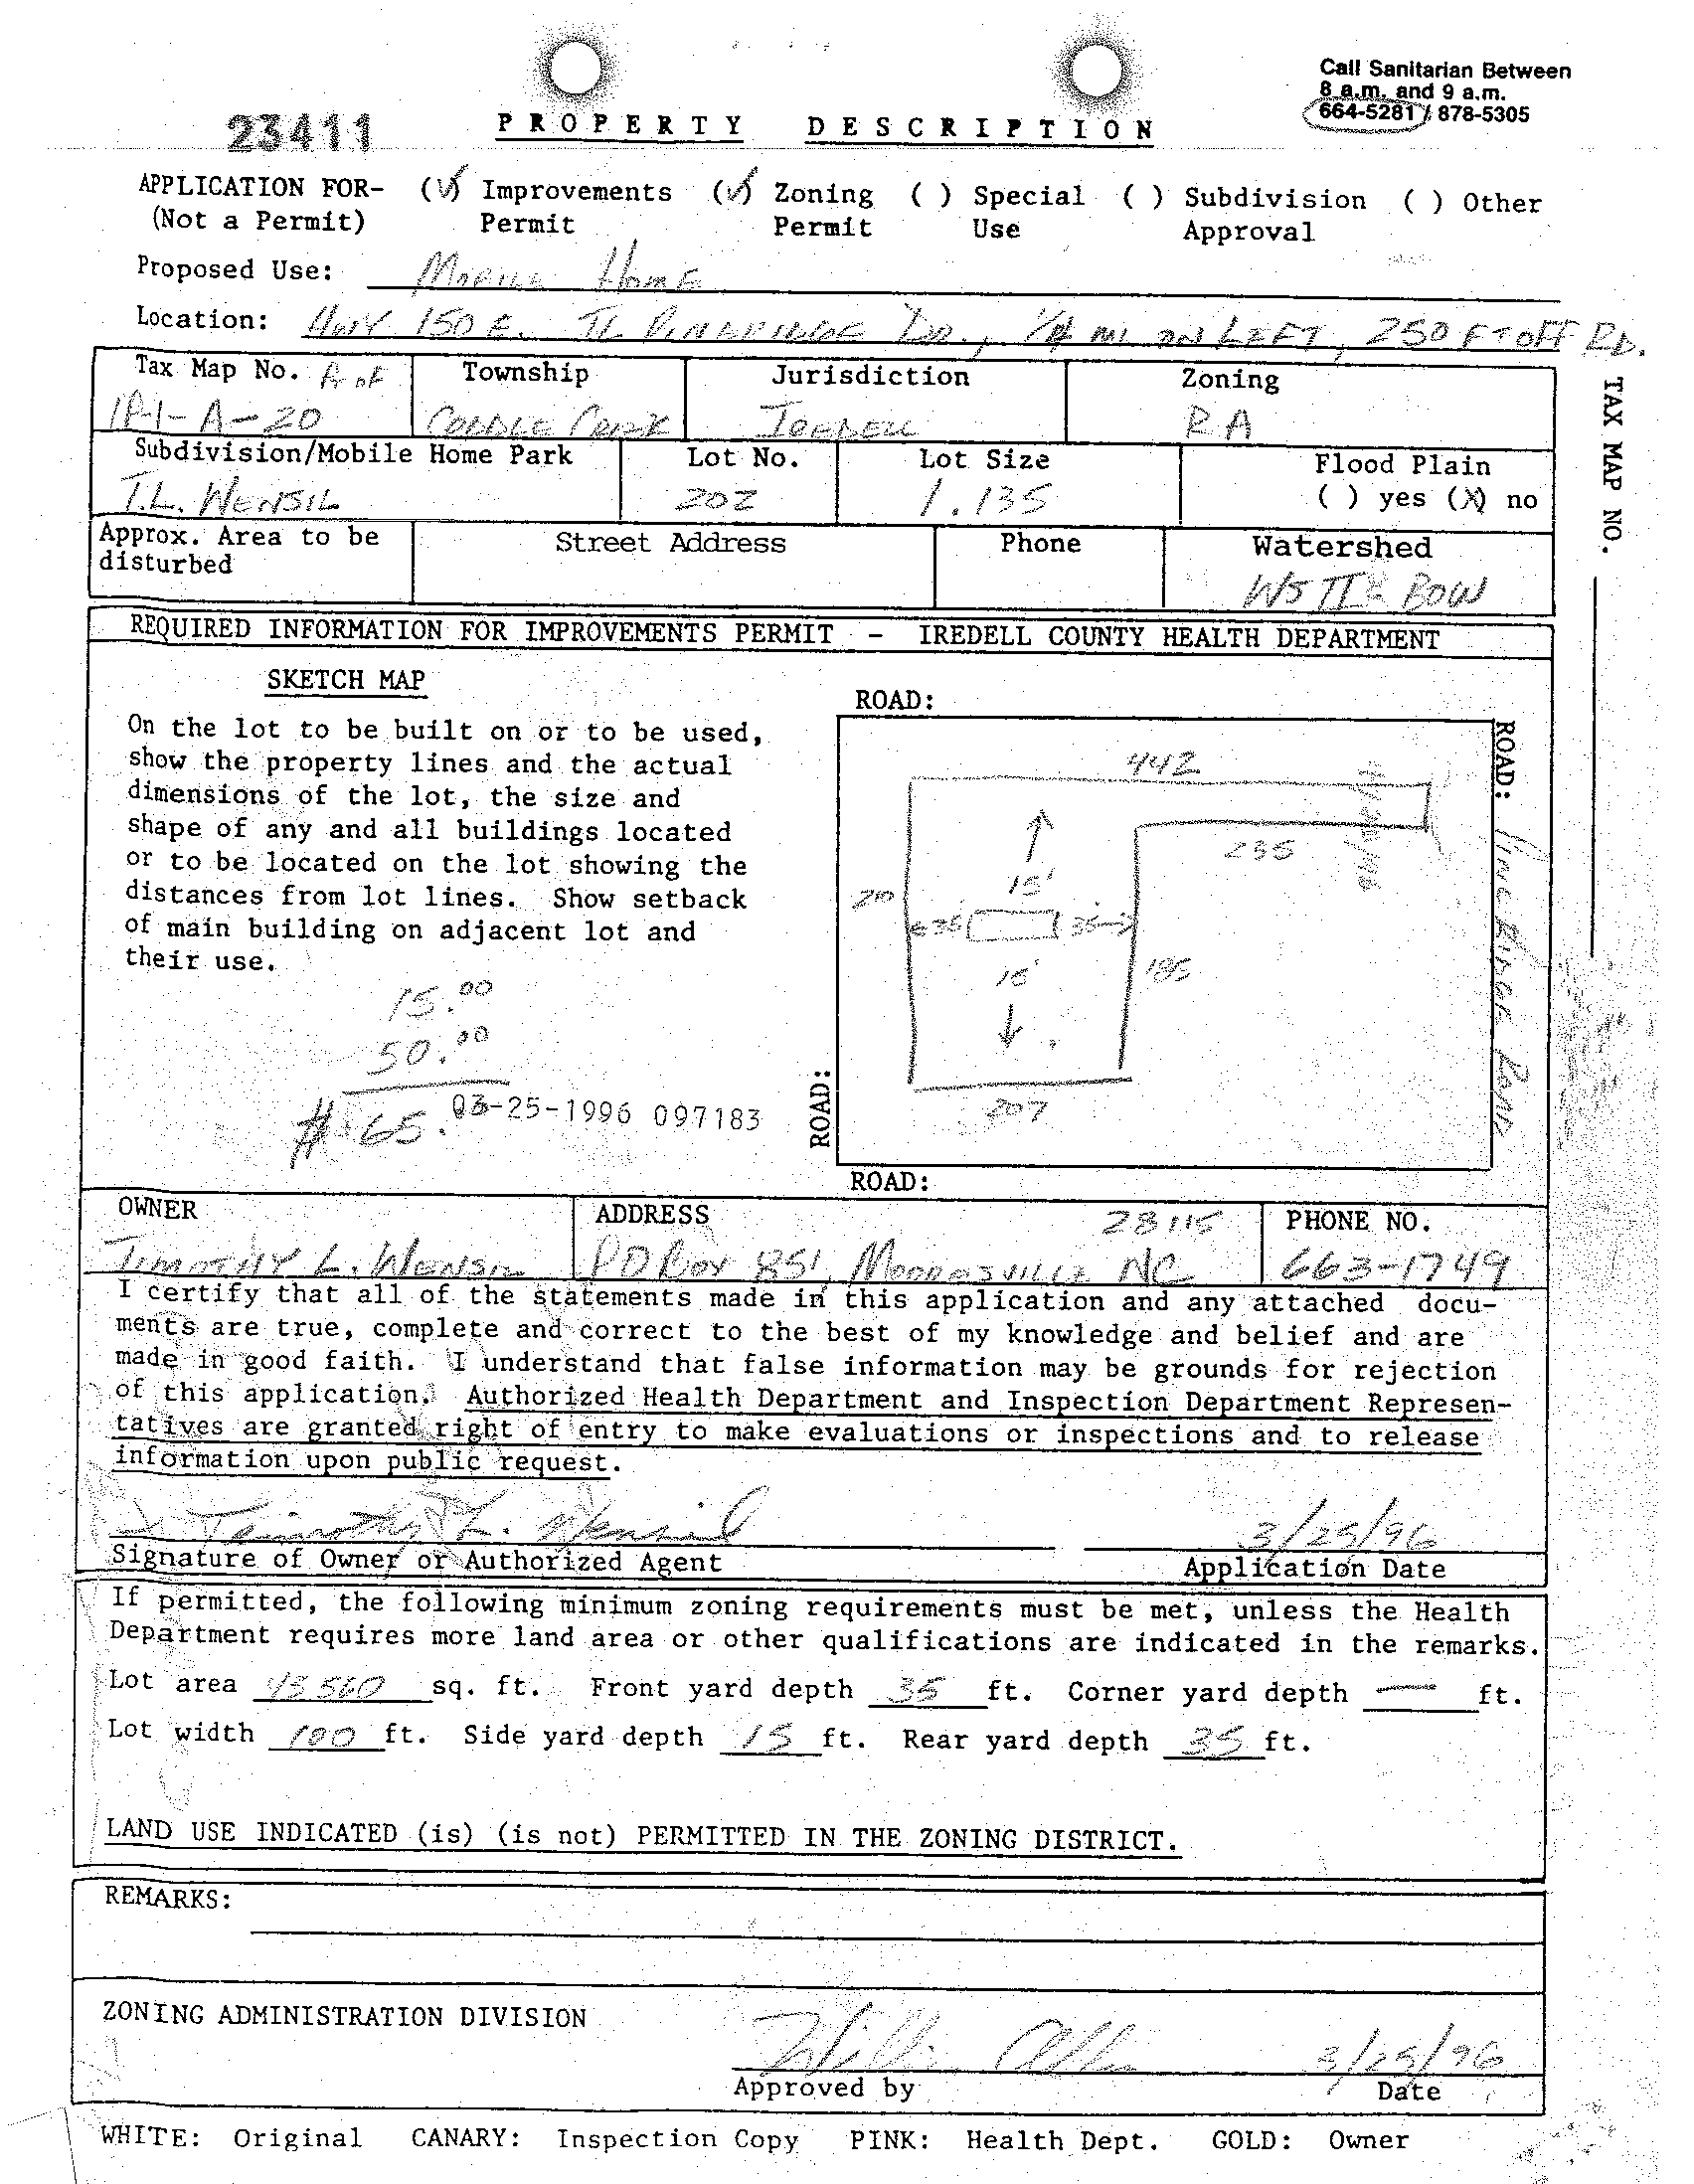 Call Sanitarian Between
8 a.m. and 9 a.m.
664-5281 / 878-5305
23411
PROPERTY DESCRIPTION
APPLICATION FOR- (√) Improvements (√) Zoning ( ) Special ( ) Subdivision ( ) Other
(Not a Permit) Permit Permit Use Approval
Proposed Use: MOBILE HOME
Location: HWY 150 E. TL PINERIDGE DR., 1/4 MI ON LEFT, 250 FT OFF RD.
Tax Map No. P. OF Township Jurisdiction Zoning
A-20 CODDLE CREEK IREDELL RA
Subdivision/Mobile Home Park Lot No. Lot Size Flood Plain
T.L. WENSIL 202 1.135 ( ) yes (X) no
Approx. Area to be Street Address Phone Watershed
disturbed
WS II BOW
TAX MAP NO.
REQUIRED INFORMATION FOR IMPROVEMENTS PERMIT - IREDELL COUNTY HEALTH DEPARTMENT
SKETCH MAP
ROAD:
On the lot to be built on or to be used,
show the property lines and the actual
dimensions of the lot, the size and
shape of any and all buildings located
or to be located on the lot showing the
distances from lot lines. Show setback
of main building on adjacent lot and
their use.
442
235
15'
35 35
15'
185
207
ROAD: PINE RIDGE
ROAD:
ROAD:
15.00
50.00
$ 65.
03-25-1996 097183
OWNER ADDRESS 28115 PHONE NO.
TIMOTHY L. WENSIL PO BOX 851, MOORESVILLE NC 663-1749
I certify that all of the statements made in this application and any attached docu-
ments are true, complete and correct to the best of my knowledge and belief and are
made in good faith. I understand that false information may be grounds for rejection
of this application. Authorized Health Department and Inspection Department Represen-
tatives are granted right of entry to make evaluations or inspections and to release
information upon public request.
Timothy L. Wensil 3/25/96
Signature of Owner or Authorized Agent Application Date
If permitted, the following minimum zoning requirements must be met, unless the Health
Department requires more land area or other qualifications are indicated in the remarks.
Lot area 43560 sq. ft. Front yard depth 35 ft. Corner yard depth — ft.
Lot width 100 ft. Side yard depth 15 ft. Rear yard depth 35 ft.
LAND USE INDICATED (is) (is not) PERMITTED IN THE ZONING DISTRICT.
REMARKS:
ZONING ADMINISTRATION DIVISION
3/25/96
Approved by Date
WHITE: Original CANARY: Inspection Copy PINK: Health Dept. GOLD: Owner